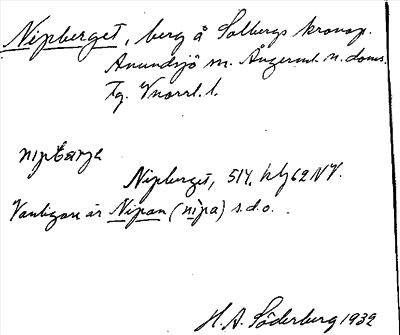 Nipberget, berg å Solbergs kronop.
Anundsjö sn. Ångerml. n. doms.
Fg. Vnorrl. l.
nipbærje
Nipberget, 514, hbl 62 NV.
Vanligare är Nipan (nipa) s.d.o.
H. A. Söderberg 1932